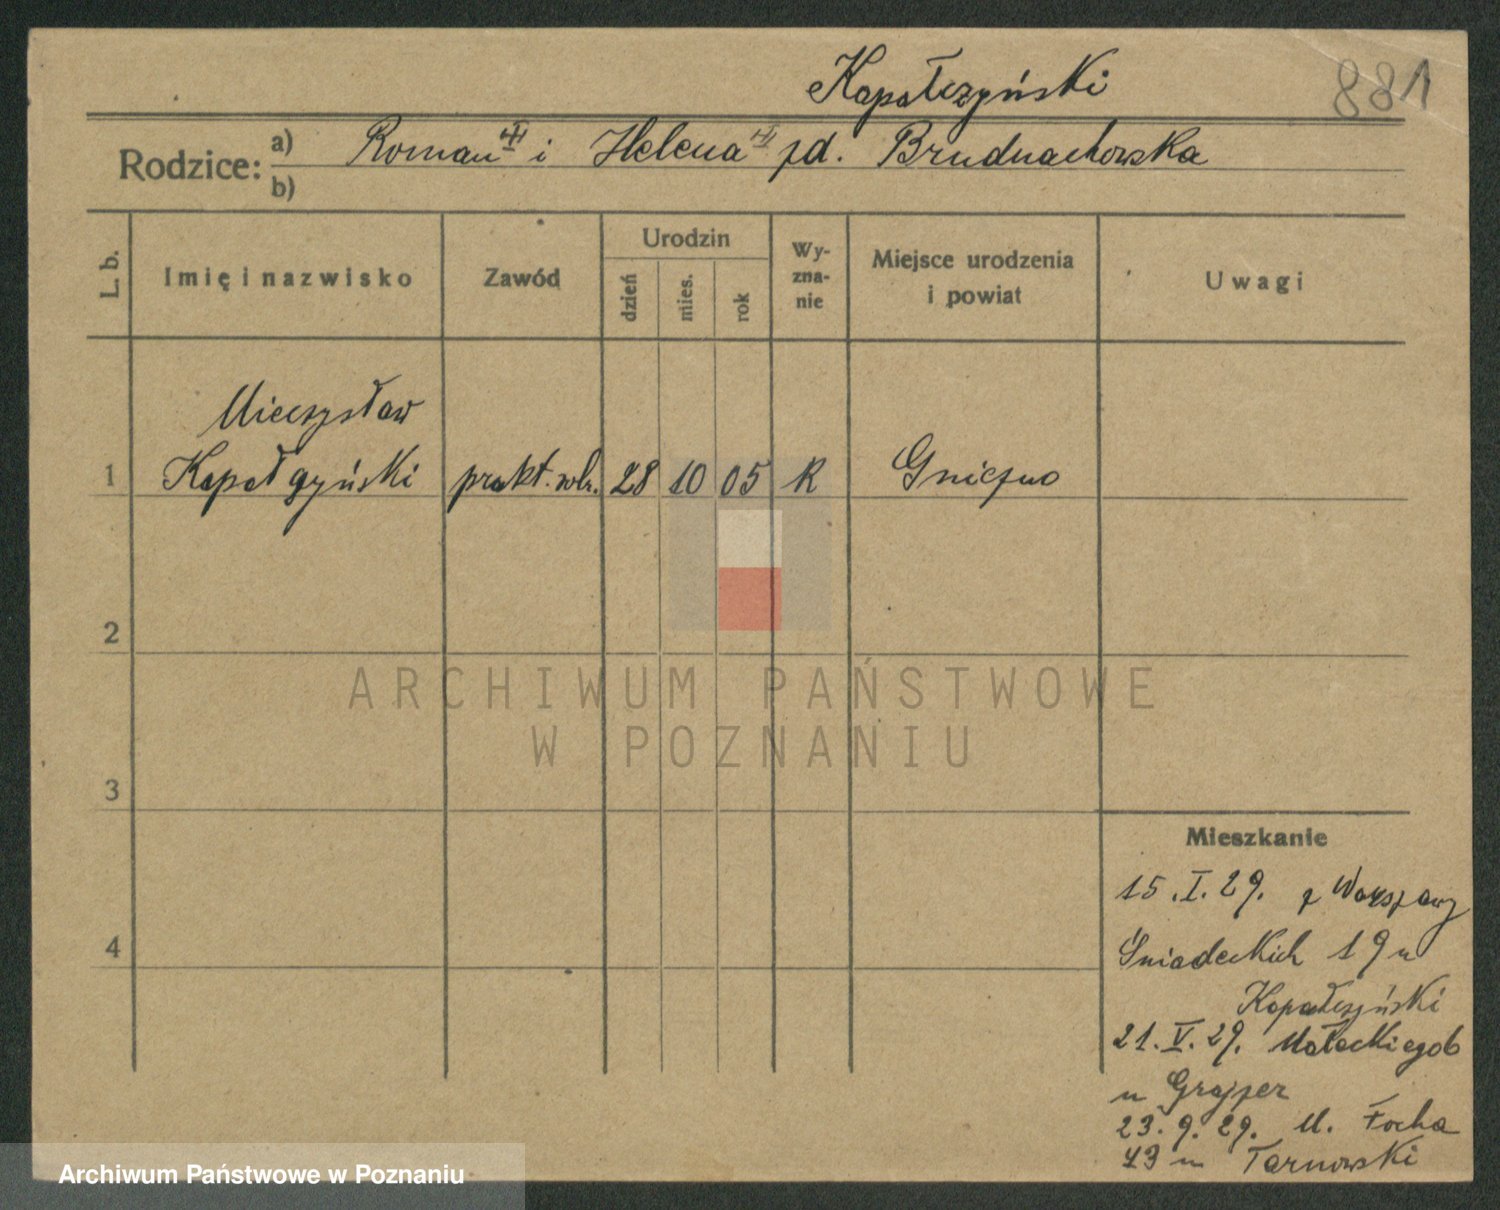 Kapałczyński
881
Rodzice:
a) Roman i Helena zd. Brudnachowska
b)
L. b.
Imię i nazwisko
Zawód
Urodzin
dzień
mies.
rok
Wy-
zna-
nie
Miejsce urodzenia
i powiat
Uwagi
Mieczysław
1 Kapałczyński prakt. 28 10 05 R Gniezno
2
3
4
Mieszkanie
15.I.29. z Warszawy
Śniadeckich 19 u
Kapałczyński
21.V.29. Małeckiego 6
u Grajzer
23.9.29. M. Focha
49 u Tarnowski
ARCHIWUM PAŃSTWOWE
W POZNANIU
Archiwum Państwowe w Poznaniu